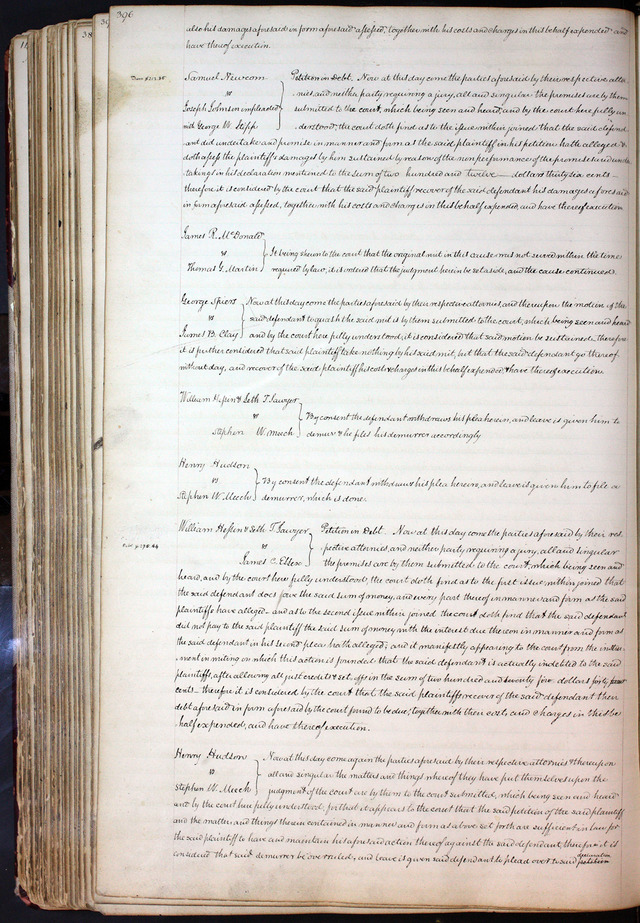 396
also his damages aforesaid in form aforesaid assessed, together with his costs and charges in this behalf expended and
have thereof execution.
Dam $212.36
Samuel Newcom
vs
Joseph Johnson impleaded
with George W. Stipp
Petition in Debt. Now at this day come the parties aforesaid by their respective attor
nies and neither party requiring a jury, all and singular the premises are by them
submitted to the court, which being seen and heard, and by the court here fully un
derstood, the court doth find as to the issue within joined that the said defend
ant did undertake and promise in manner and form as the said plaintiff in his petition hath alleged &
doth assess the plaintiffs damages by him sustained by reason of the non performance of the promises and under
takings in his declaration mentioned to the sum of two hundred and twelve — dollars thirty six cents —
therefore it is considered by the court that the said plaintiff recover of the said defendant his damages aforesaid
in form aforesaid assessed, together with his costs and charges in this behalf expended, and have thereof execution
James R. McDonald
vs
Thomas G. Martin
It being shewn to the court that the original writ in this cause was not served within the time
required by law, it is ordered that the judgment herein be set aside, and the cause continued.
George Spiers
vs
James B. Clay
Now at this day come the parties aforesaid by their respective attornies, and thereupon the motion of the
said defendant to quash the said writ is by them submitted to the court, which being seen and heard
and by the court here fully understood, it is considered that said motion be sustained, therefore
it is further considered that said plaintiff take nothing by his said writ, but that the said defendant go thereof
without day, and recover of the said plaintiff his costs & charges in this behalf expended & have thereof execution.
William Hesten & Seth T. Sawyer
vs
Stephen W. Meech
By consent the defendant withdraws his plea herein, and leave is given him to
demur & he files his demurrer accordingly
Henry Hudson
vs
Stephen W. Meech
By consent the defendant withdraws his plea herein, and leave is given him to file a
demurrer, which is done.
Debt $294.44
William Hesten & Seth T. Sawyer
vs
James C. Essex
Petition in Debt. Now at this day come the parties aforesaid by their res
pective attornies, and neither party requiring a jury, all and singular
the premises are by them submitted to the court, which being seen and
heard, and by the court here fully understood, the court doth find as to the first issue within joined that
the said defendant does owe the said sum of money, and every part thereof in manner and form as the said
plaintiffs have alleged — and as to the second issue within joined the court doth find that the said defendant
did not pay to the said plaintiff the said sum of money with the interest due thereon in manner and form as
the said defendant in his second plea hath alleged; and it manifestly appearing to the court from the instru
ment in writing on which this action is founded that the said defendant is actually indebted to the said
plaintiffs, after allowing all just credits & set offs in the sum of two hundred and four dollars forty four
cents — therefore it is considered by the court that the said plaintiffs recover of the said defendant their
debt aforesaid in form aforesaid by the court found to be due, together with their costs and charges in this be
half expended, and have thereof execution.
Henry Hudson
vs
Stephen W. Meech
Now at this day come again the parties aforesaid by their respective attornies & thereupon
all and singular the matters and things whereof they have put themselves upon the
judgment of the court are by them to the court submitted, which being seen and heard
and by the court here fully understood, for that it appears to the court that the said petition of the said plaintiff
and the matter and things therein contained in manner and form as above set forth are sufficient in law for
the said plaintiff to have and maintain his aforesaid action thereof against the said defendant, therefore it is
considered that said demurrer be overruled, and leave is given said defendant to plead over to said declaration
petition